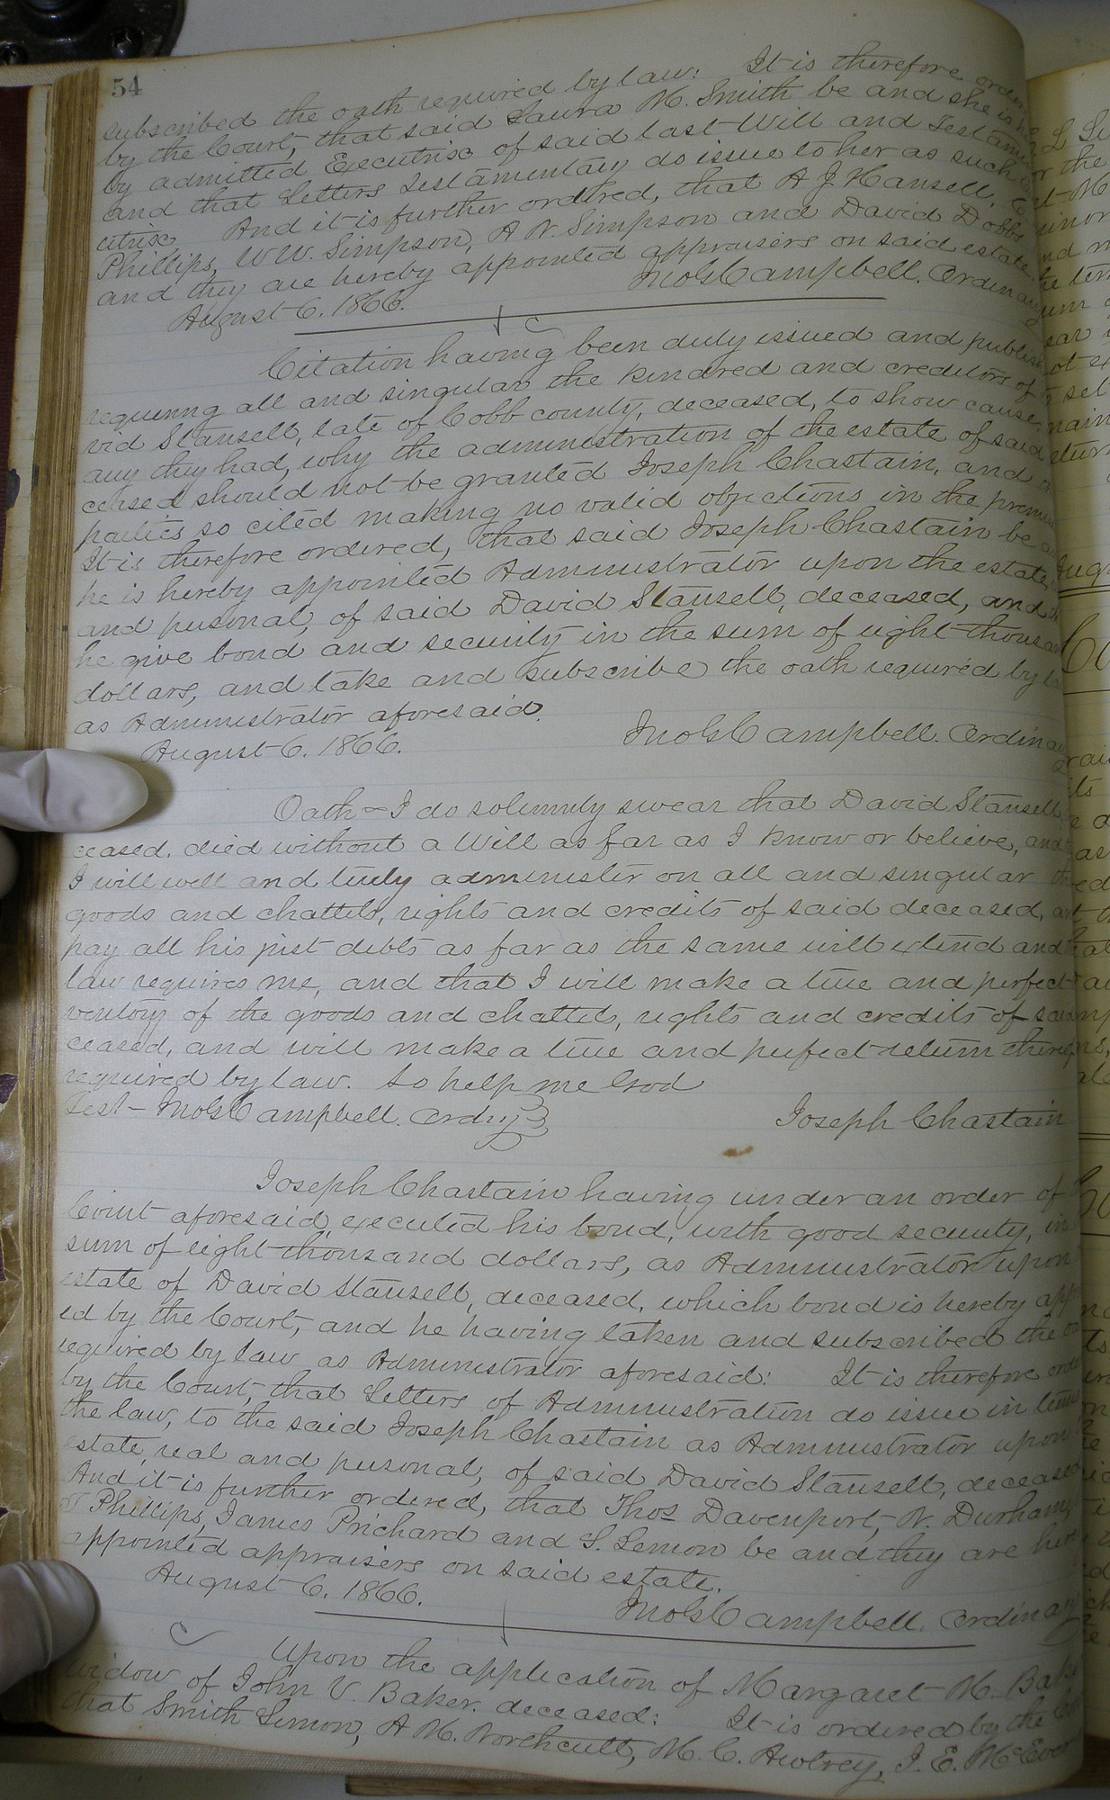 54
subscribed the oath required by law: It is therefore
by the Court, that said Laura M. Smith be and she is
by admitted Executrix of said last Will and
and that Letters Testamentary do issue to her as such
utrix. And it is further ordered, that A J Hansell,
Phillips, W W. Simpson, A N. Simpson and David Dobbs
and they are hereby appointed appraisers on said estate
August 6. 1866. Campbell. Ordinary
Citation having been duly issued and
requiring all and singular the kindred and creditors of
vid Stansell, late of Cobb county, deceased, to show cause,
any they had, why the administration of the estate of said
ceased should not be granted Joseph Chastain, and
parties so cited making no valid objections in the
It is therefore ordered, that said Joseph Chastain be
he is hereby appointed Administrator upon the estate,
and personal, of said David Stansell, deceased, and
he give bond and security in the sum of eight
dollars, and take and subscribe the oath required by
as Administrator aforesaid.
August 6. 1866. Campbell. Ordin
Oath – I do solemnly swear that David Stansell
ceased. died without a Will as far as I know or believe, and
I will well and truly administer on all and singular
goods and chattels, rights and credits of said deceased,
pay all his just debts as far as the same will extend and
law requires me, and that I will make a true and perfect
ventory of the goods and chattels, rights and credits of
ceased, and will make a true and perfect return
required by law. So help me God
Test – Campbell. Ordry Joseph Chastain
Joseph Chastain having under an order of
Court aforesaid, executed his bond, with good security, in
sum of eight thousand dollars, as Administrator upon
estate of David Stansell, deceased, which bond is hereby
ed by the Court, and he having taken and subscribed the
required by law as Administrator aforesaid: It is therefore
by the Court, that Letters of Administration do issue in
the law, to the said Joseph Chastain as Administrator upon
estate, real and personal, of said David Stansell, deceased
And it is further ordered, that Thos Davenport, N. Durham,
Phillips, James Prichard and S. Lemon be and they are
appointed appraisers on said estate.
August 6. 1866. Campbell. Ordinary
Upon the application of Margaret M. Bak
widow of John V. Baker. deceased: It is ordered by the
that Smith Lemon, A M. Northcutt, M. C. Awtrey, J. E. McEver